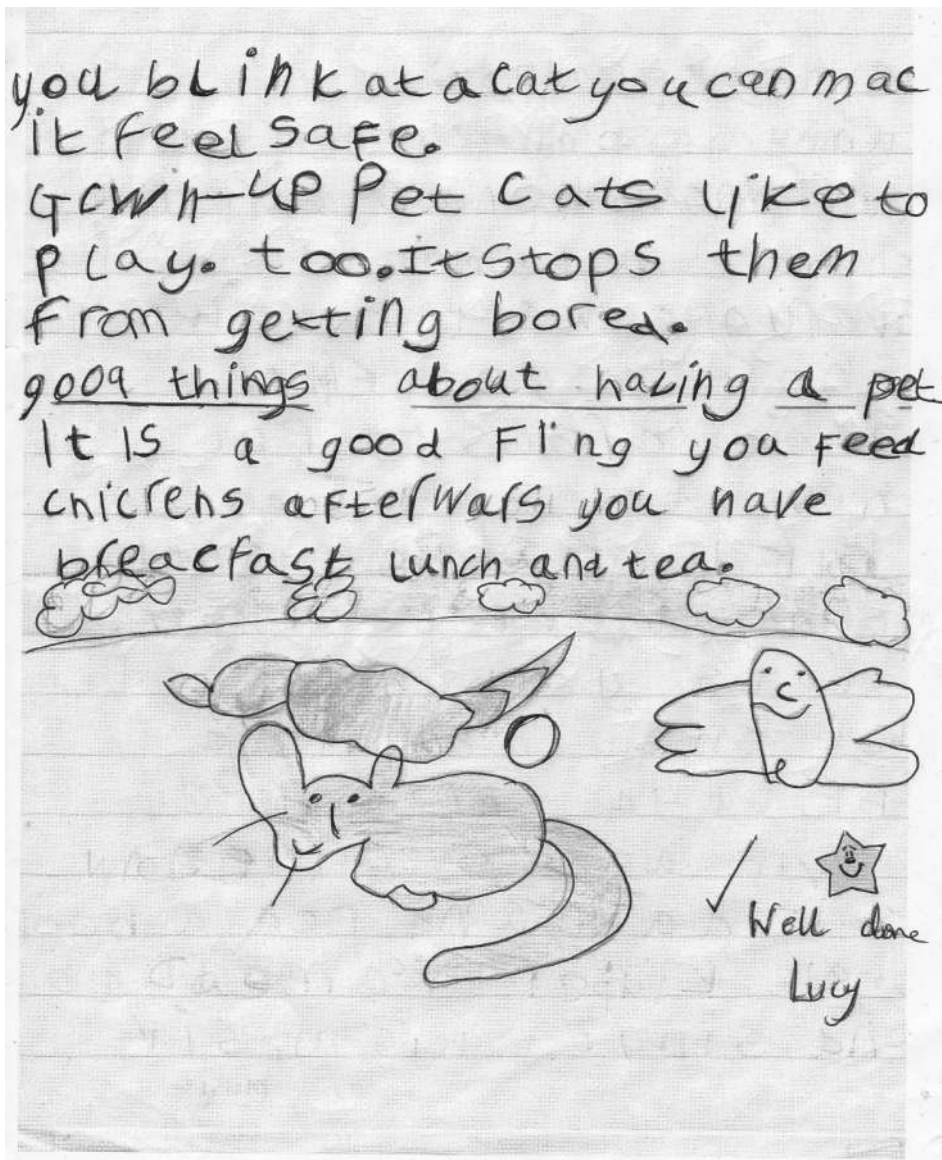 you blink at a cat you can mac
it feel safe.
Gcwn-up Pet Cats like to
play. too. It stops them
from getting bored.
good things about having a pet
It is a good Fing you feed
chicrens afterwars you have
breacfast lunch and tea.
Well done
Lucy